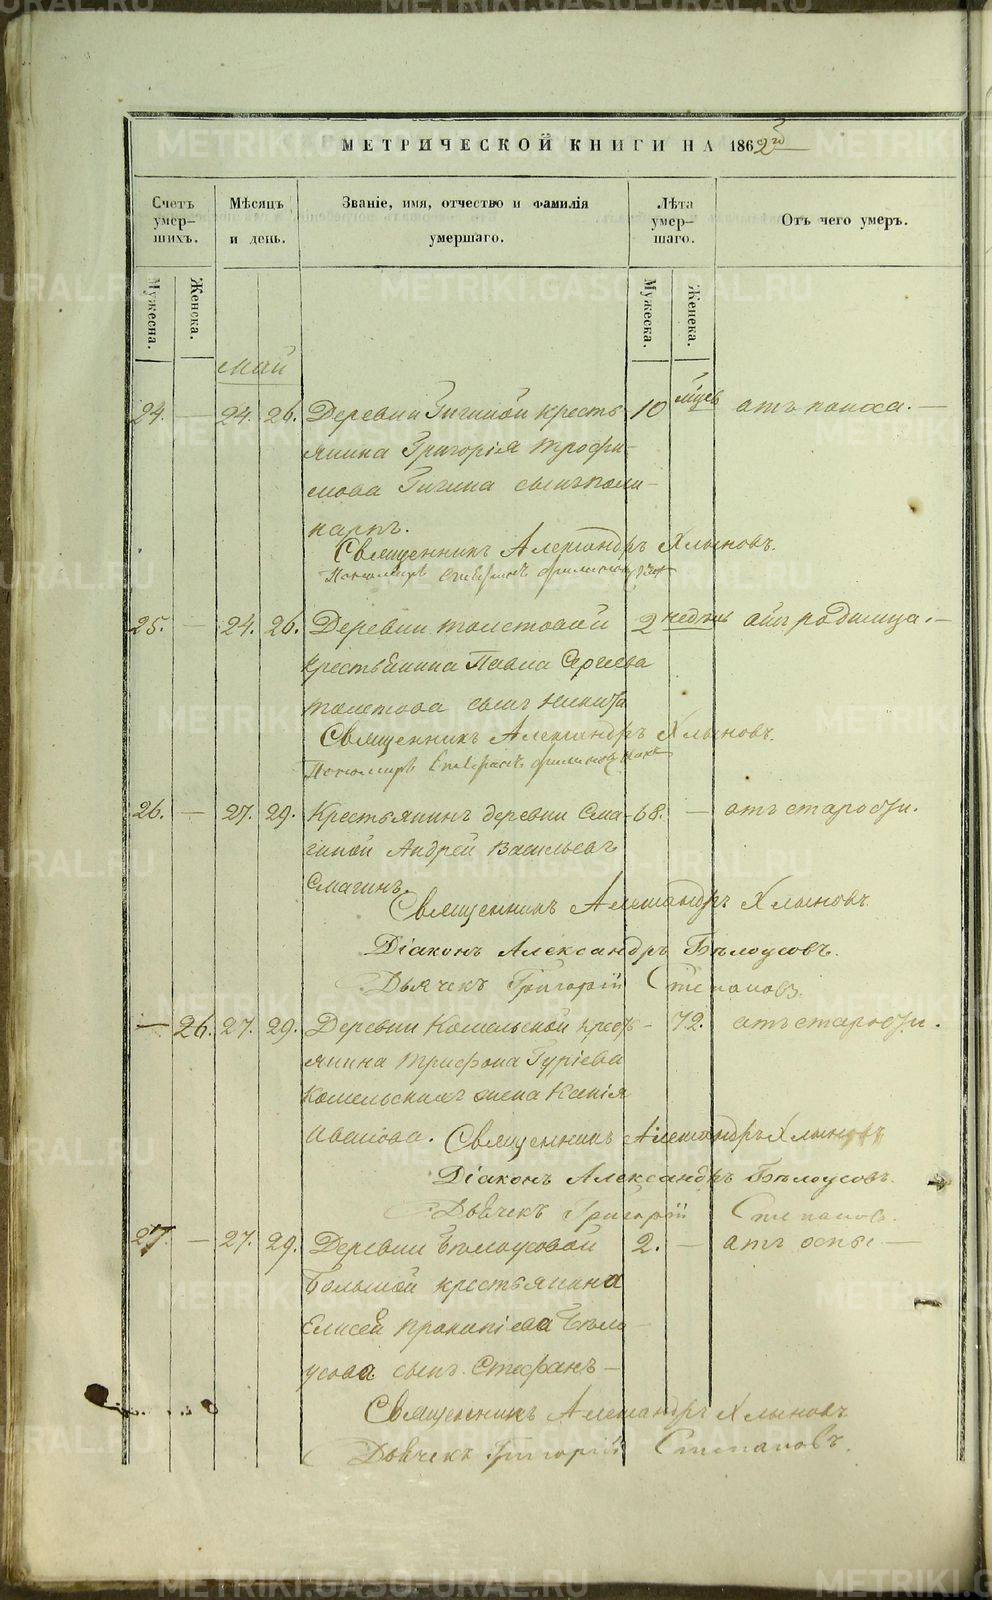 МЕТРИЧЕСКОЙ КНИГИ НА 1862 го
Счетъ умер-шихъ.
Мѣсяцъ и день.
Званіе, имя, отчество и фамилія умершаго.
Лѣта умер-шаго.
Отъ чего умеръ.
Мужеска. Женска. Мужеска. Женска.
май
24. — 24. 26. Деревни Гигиной кресть- 10 мцев отъ поноса. —
янина Григорія Трофи-
мова Гигина сынъ Поли-
карпъ.
Священникъ Александръ Хлыновъ.
Пономарь
25. — 24. 26. Деревни Толстовой 2 недѣль отъ родимца. —
крестьянина Павла Сергеева
Толстова сынъ Никита
Священникъ Александръ Хлыновъ.
Пономарь
26. — 27. 29. Крестьянинъ деревни Сма- 68. — отъ старости.
гиной Андрей Васильевъ
Смагинъ.
Священникъ Александръ Хлыновъ
Діаконъ Александръ Бѣлоусовъ.
Дьячекъ Григорій Степановъ.
— 26. 27. 29. Деревни Комельской крест- — 72. отъ старости.
янина Трифона Гуріева
Комельскихъ жена Ксенія
Иванова. Священникъ Александръ Хлыновъ
Діаконъ Александръ Бѣлоусовъ.
Дьячекъ Григорій Степановъ.
27. — 27. 29. Деревни Бѣлоусовой 2. — отъ оспы —
Большой крестьянина
Елисей Прокопіева Бѣло-
усова сынъ Стефанъ —
Священникъ Александръ Хлыновъ
Дьячекъ Григорій Степановъ.
METRIKI.GASO-URAL.RU